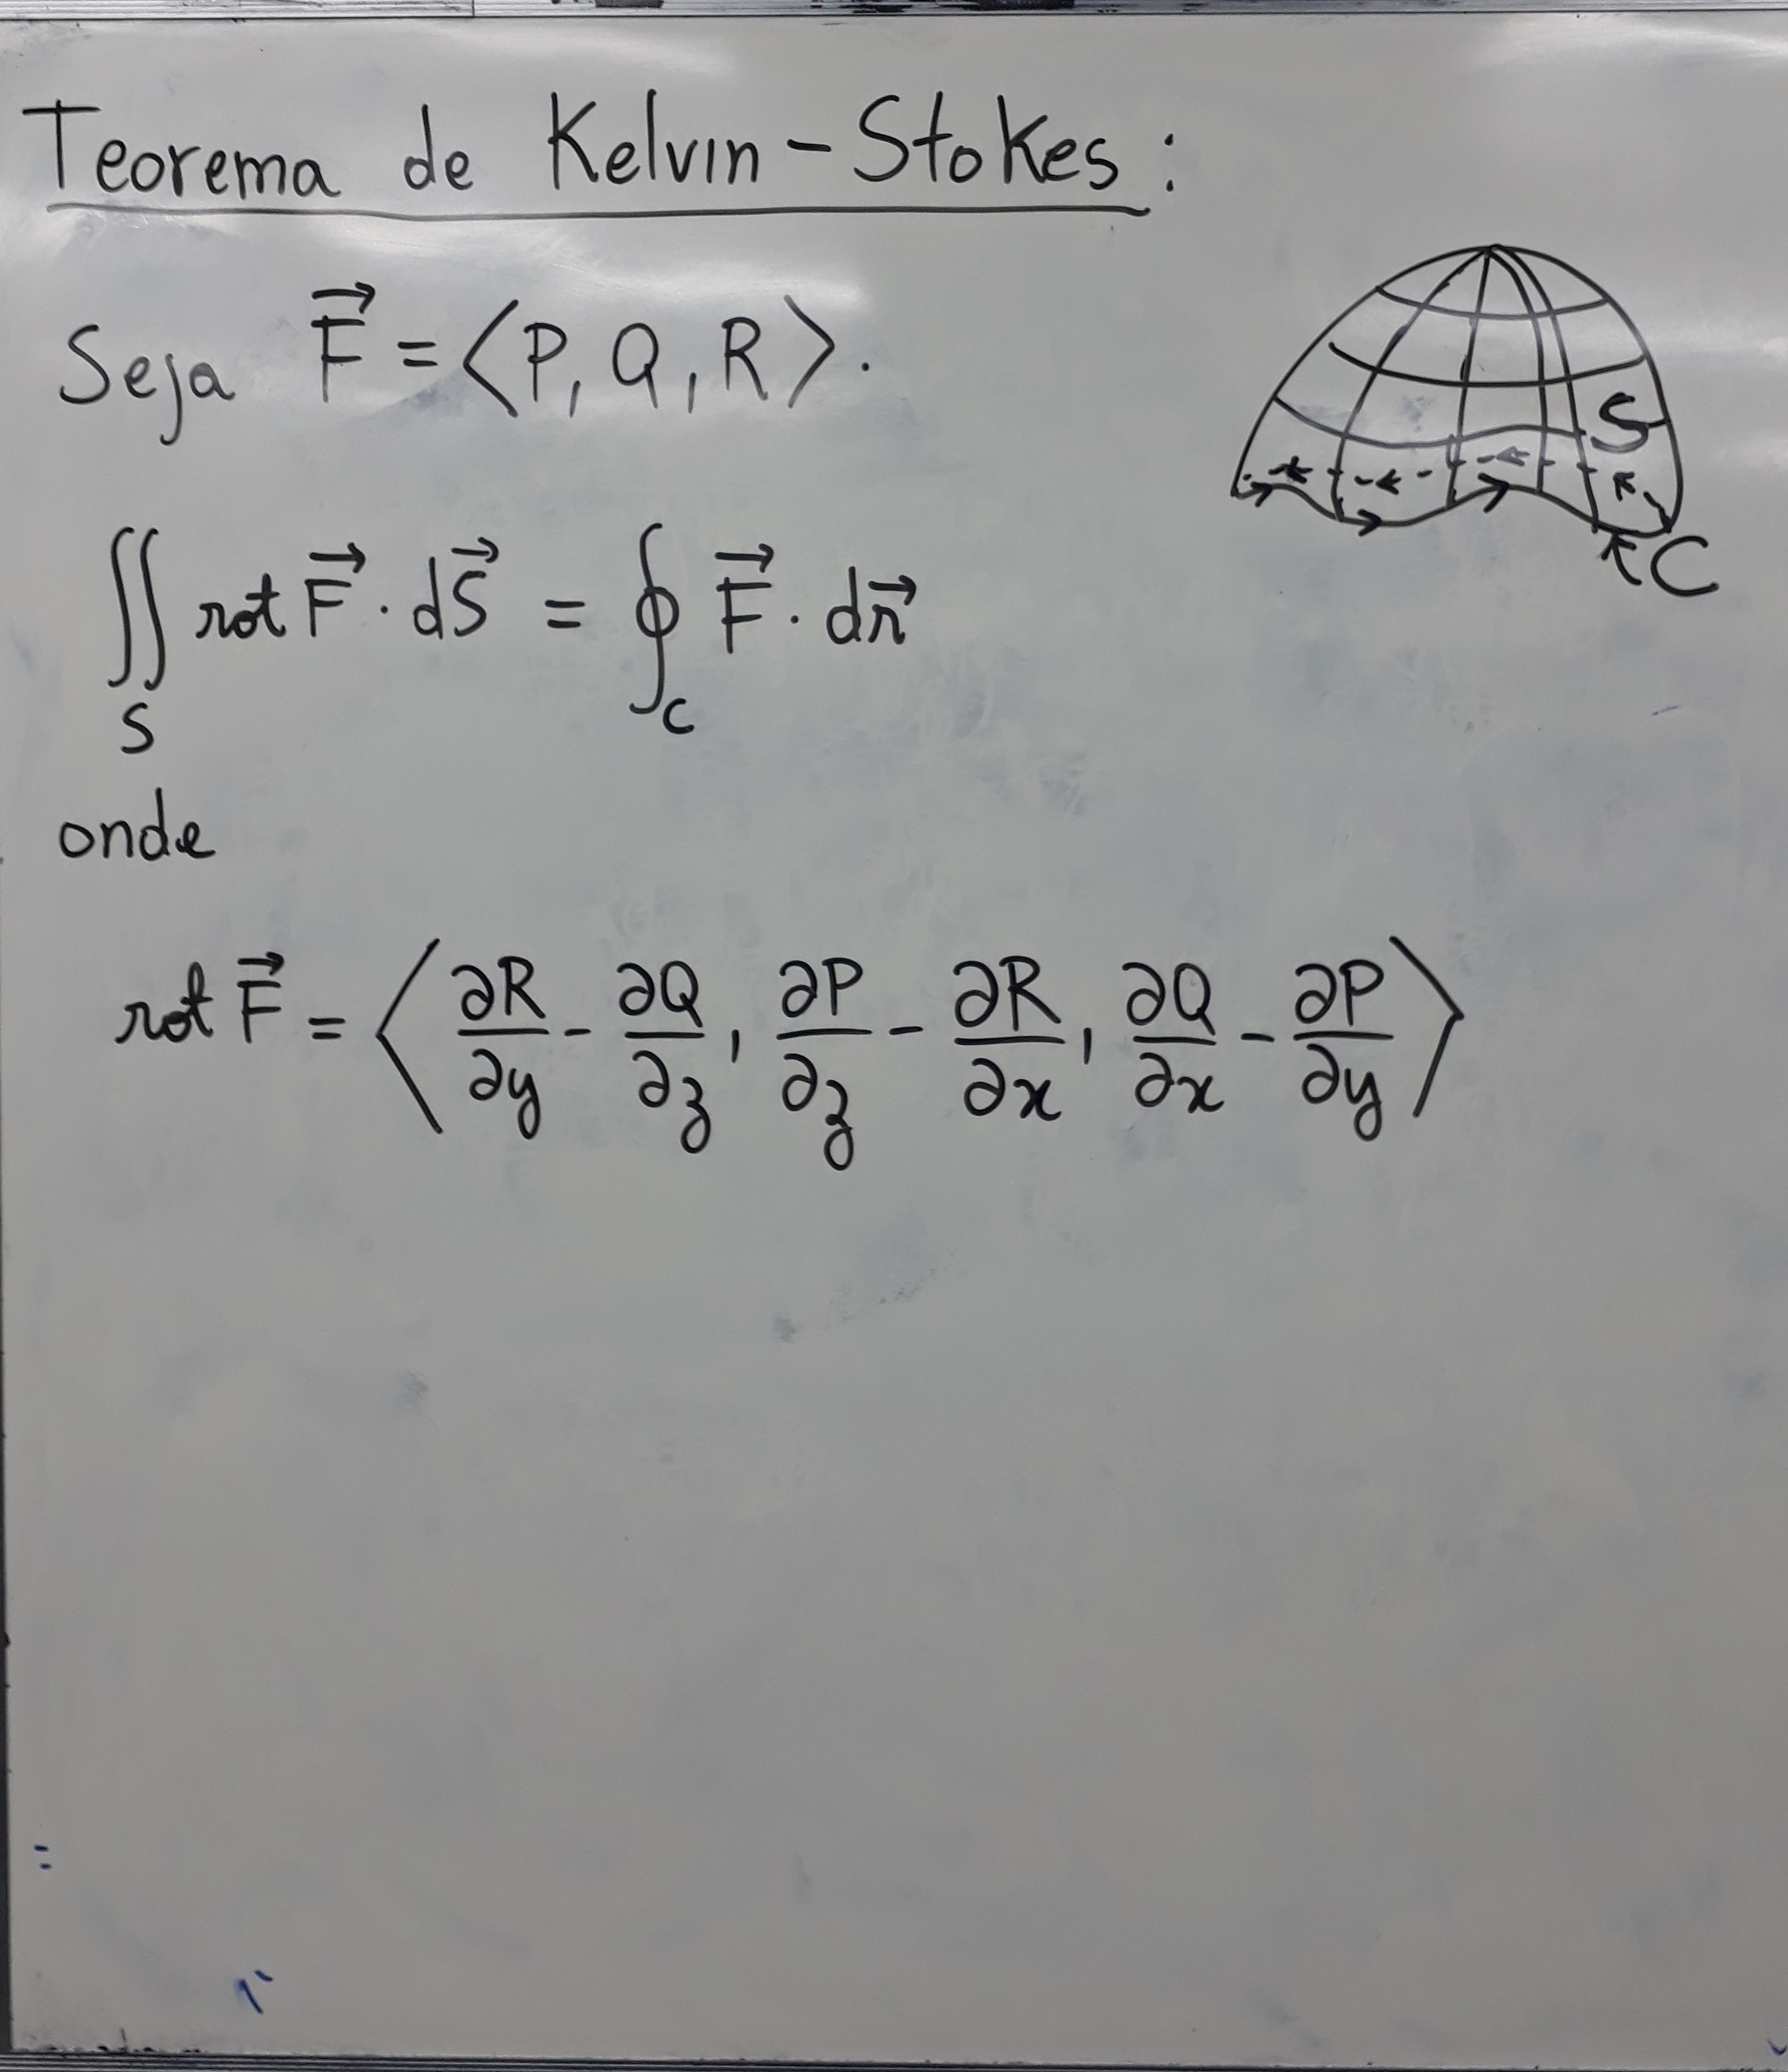 Teorema de Kelvin-Stokes:
Seja $\vec{F} = \langle P, Q, R \rangle.$
S
C
$\iint_S rot \vec{F} \cdot d\vec{S} = \oint_C \vec{F} \cdot d\vec{r}$
onde
$rot \vec{F} = \left\langle \frac{\partial R}{\partial y} - \frac{\partial Q}{\partial z}, \frac{\partial P}{\partial z} - \frac{\partial R}{\partial x}, \frac{\partial Q}{\partial x} - \frac{\partial P}{\partial y} \right\rangle$